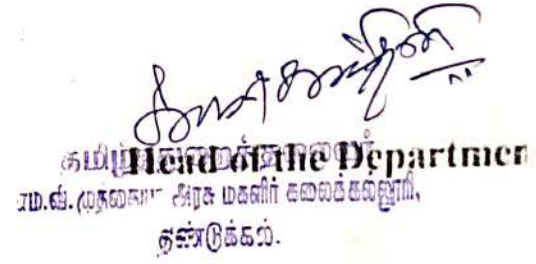 தமிழ்த்துறைத்தலைவர்
Head of the Departmen
எம்.வி. முத்தையா அரசு மகளிர் கலைக்கல்லூரி,
திண்டுக்கல்.